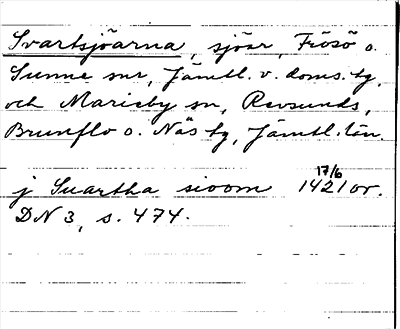 Svartsjöarna, sjöar, Frösö o.
Sunne snr, Jämtl. v. doms. tg,
och Marieby sn, Revsunds,
Brunflo o. Näs tg, Jämtl. län.
j Suartha sioom 17/6 1421 or.
DN 3, s. 474.